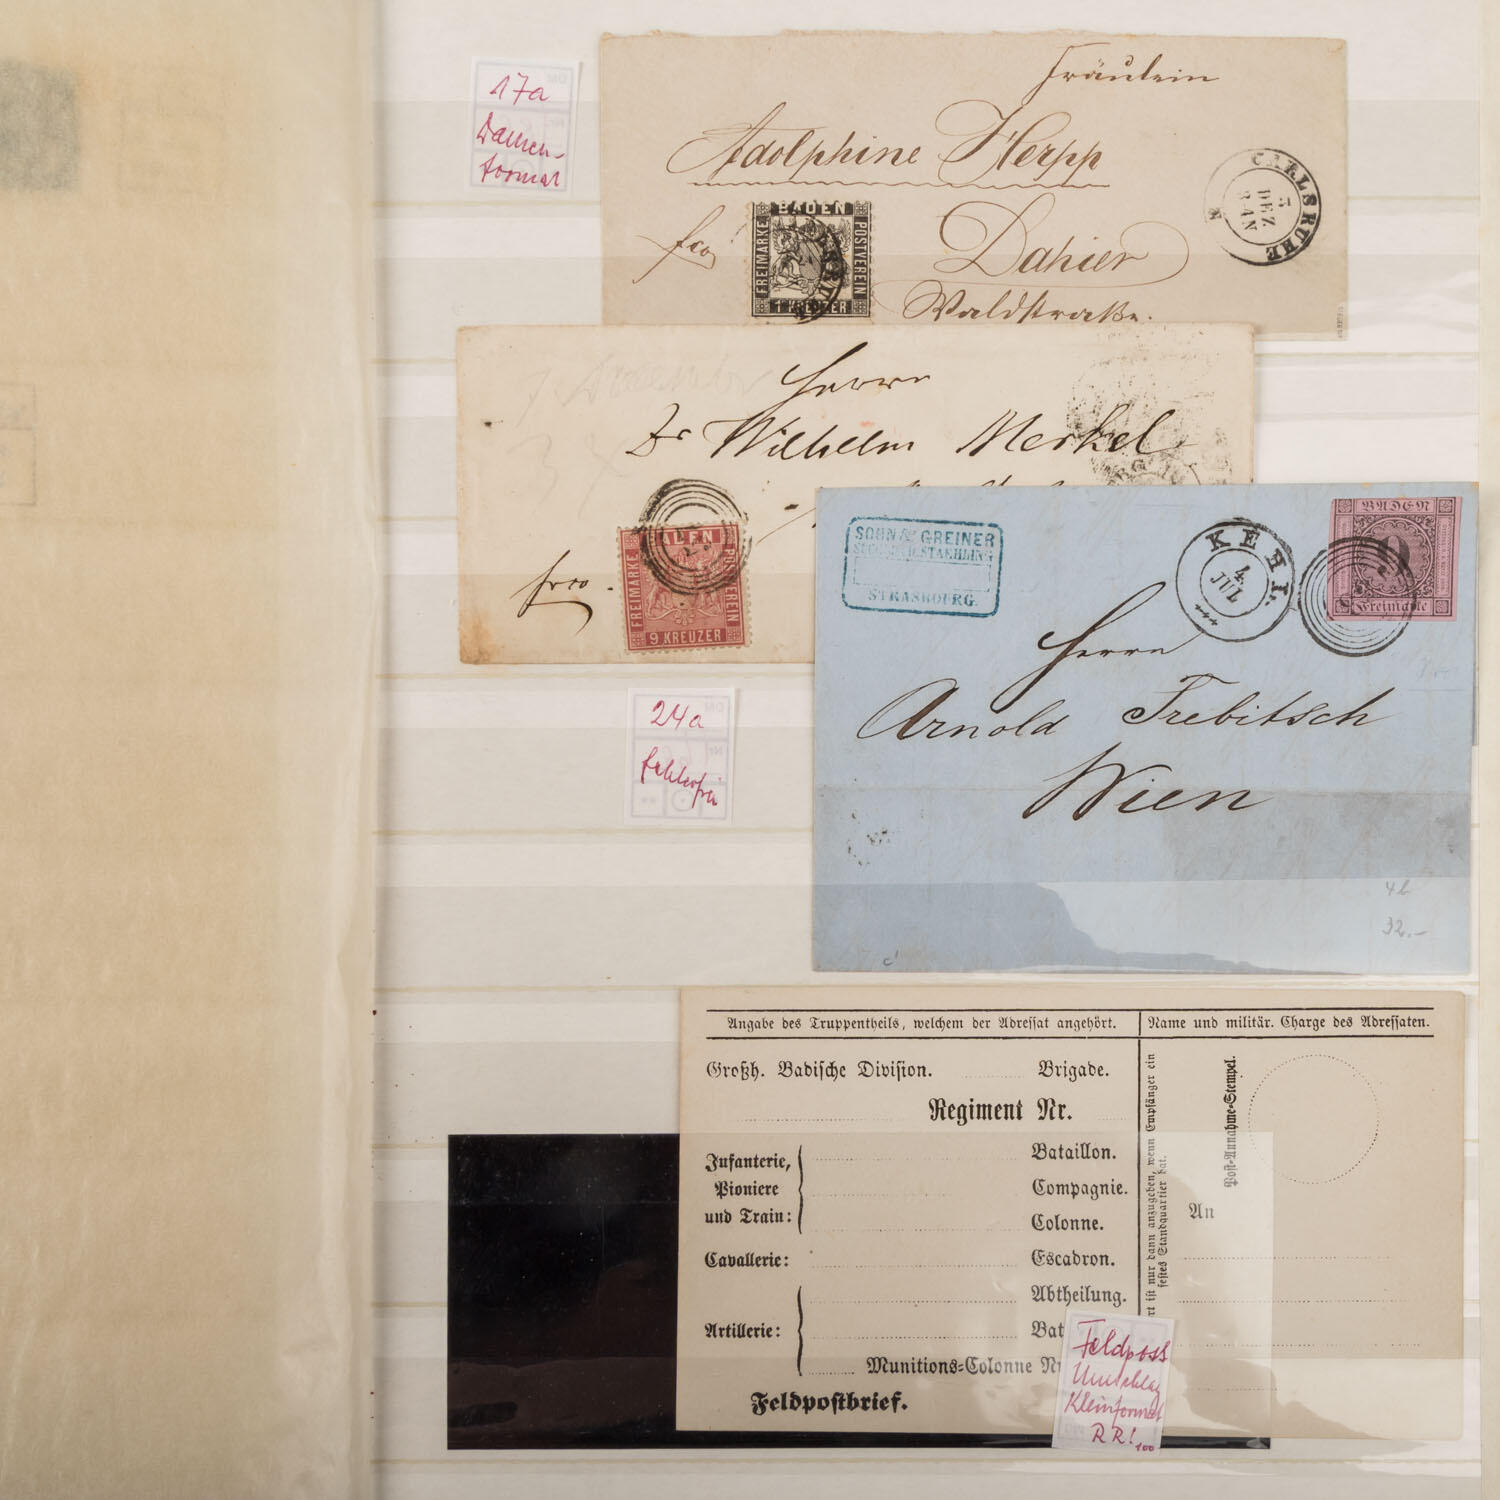 17a
Damen-
format
Fräulein
Adolphine Herpp
fco
Dahier
Waldstraße.
CARLSRUHE
5
DEZ
BADEN
FREIMARKE
POSTVEREIN
1 KREUZER
Herrn
Dr Wilhelm Merkel
frco.
FREIMARKE
POSTVEREIN
9 KREUZER
24a
fehlerfrei
SOHN & GREINER
STRASBOURG.
KEHL.
4
JUL
BADEN
9
Freimarke
Herrn
Arnold Trebitsch
Wien
4b
32.-
Angabe des Truppentheils, welchem der Adressat angehört.
Name und militär. Charge des Adressaten.
Großh. Badische Division.
Brigade.
Regiment Nr.
Infanterie,
Pioniere
und Train:
Bataillon.
Compagnie.
Colonne.
Cavallerie:
Escadron.
Artillerie:
Abtheilung.
Bat
Munitions-Colonne N
Feldpostbrief.
rt ist nur dann anzugeben, wenn Empfänger ein
festes Standquartier hat.
Post-Annahme-Stempel.
An
Feldpost
Umschlag
Kleinformat
RR!
100